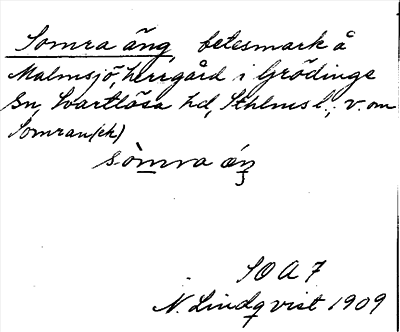 Somra äng, betesmark å
Malmsjö, herrgård i Grödinge
sn, Svartlösa hd, Sthlms l., v. om
Somran(ch)
sòmra áŋ
SOA7
N. Lindqvist 1909